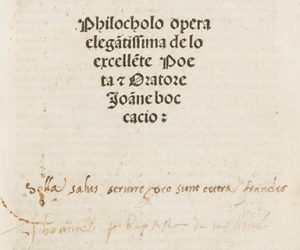 Philocholo opera
elegãtissima de lo
excellẽte Poe
ta ⁊ Oratore
Joãne boc
cacio:
Solla salus servire Deo sunt cetera fraudes
Baptista de